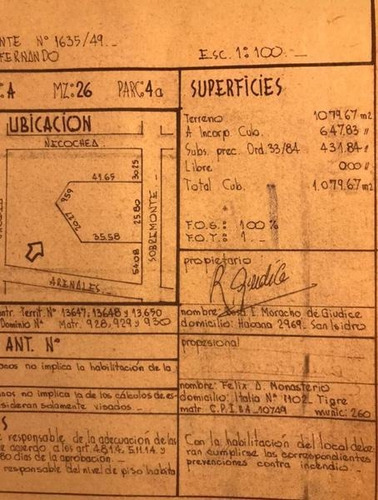 NTE Nº 1635/49._
FERNANDO
ESC. 1:100._
:A MZ:26 PARC:4a
UBICACION
NECOCHEA
41.65
30.25
9.59
20.27
25.80
35.58
54.08
SOBREMONTE
ARENALES
matr. Territ. Nº 13647, 13648 y 13.650
Dominio Nº Matr. 928, 929 y 930
ANT. Nº
no implica la habilitación de la
no implica la de los cálculos de es-
sideran solamente visados._
S
responsable de la adecuación de las
acuerdo a los art. 4.8.1.4. 5.11.1.4 y
80 días de la aprobación._
responsable del nivel de piso habita
SUPERFICIES
Terreno 1.079.67 m2
A Incorp Cub. 647.83 "
Subs. prec. Ord. 33/84 431.84 "
Libre 0.00 "
Total Cub. 1.079.67 m2
F.O.S.: 100 %
F.O.T.: 1._
propietario
R Giudice
nombre: Moracho de Giudice
domicilio: Habana 2969. San Isidro
profesional
nombre: Felix D. Monasterio
domicilio: Italia Nº 1102. Tigre
matr. C.P.I.BA. 10749 munic: 260
Con la habilitación del local debe
rán cumplirse las correspondientes
prevenciones contra incendio.